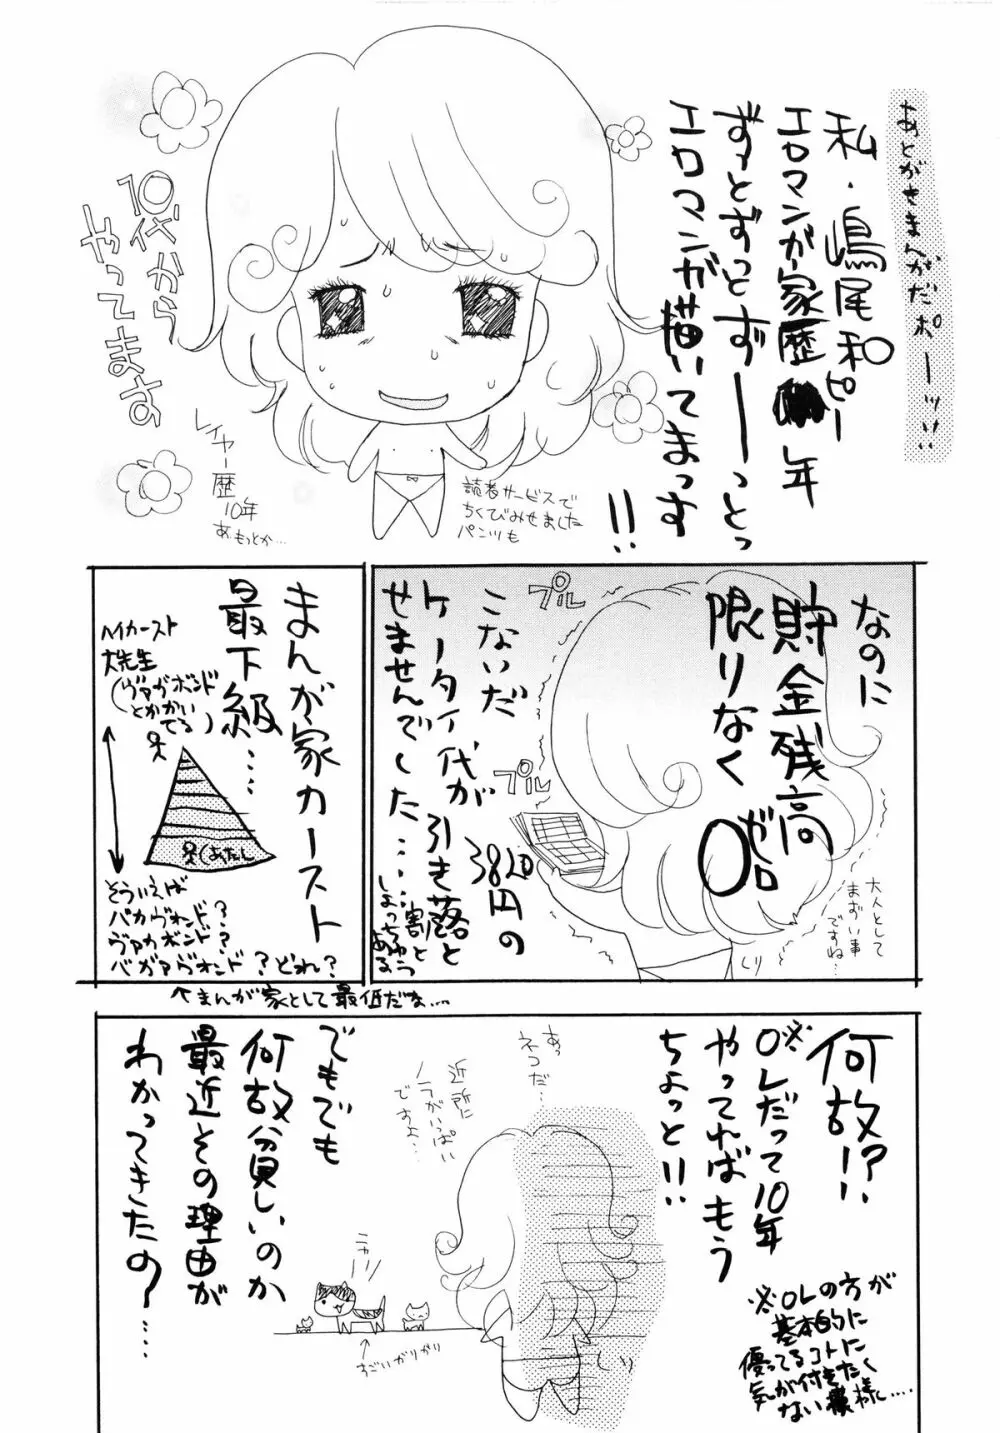 あとがきまんがだポーッ!!
私・嶋尾和ピー
エロマンガ家歴
年
ずっとずっとずーーっとっ
エロマンガ描いてまっす
!!
10代から
やってます
レイヤー歴
10年
あ、もっとか…
読者サービスで
ちくびみせました
パンツも
なのに
貯金残高
限りなく
0
ゼロ
プル
プル
こないだ
ケータイ代が
引き落と
せませんでした……
3820円の
割と
しょっちゅう
ある
大人として
まずい事
ですね…
まんが家カースト
最下級……
ハイカースト
大先生
(ヴァガボンド
とかかい
てる)
(あたし
そういえば
バカヴォンド?
ヴァカボンド?
バガァヴォンド?どれ?
↑まんが家として最低だな……
何故!?
※OLだって10年
やってればもう
ちょっと!!
※OLの方が
基本的に
優ってるコトに
気が付きたく
ない模様……
あっ
ネコだ…
近所に
ノラがいっぱい
ですよ…
ニャハ
すごいがりがり
でもでも
何故貧しいのか
最近その理由が
わかってきたの……